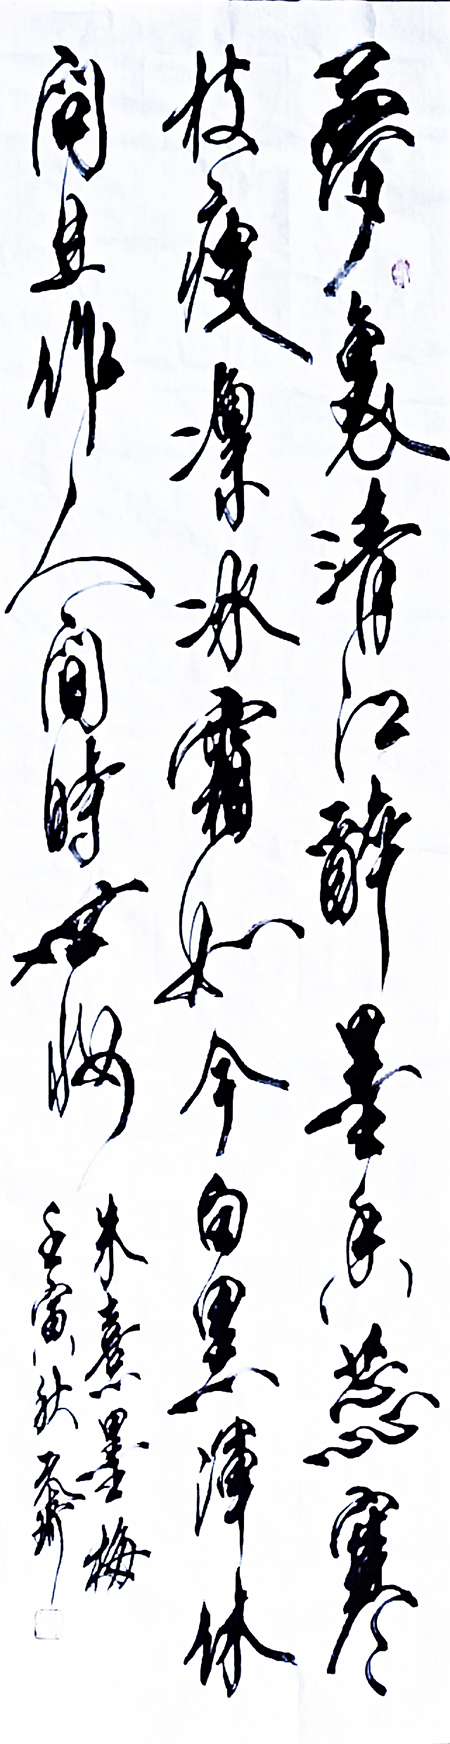 夢裏清江醉墨香蕊寒
枝瘦凜冰霜如今白黑渾休
問且作人間時世妝
朱熹墨梅
壬寅秋